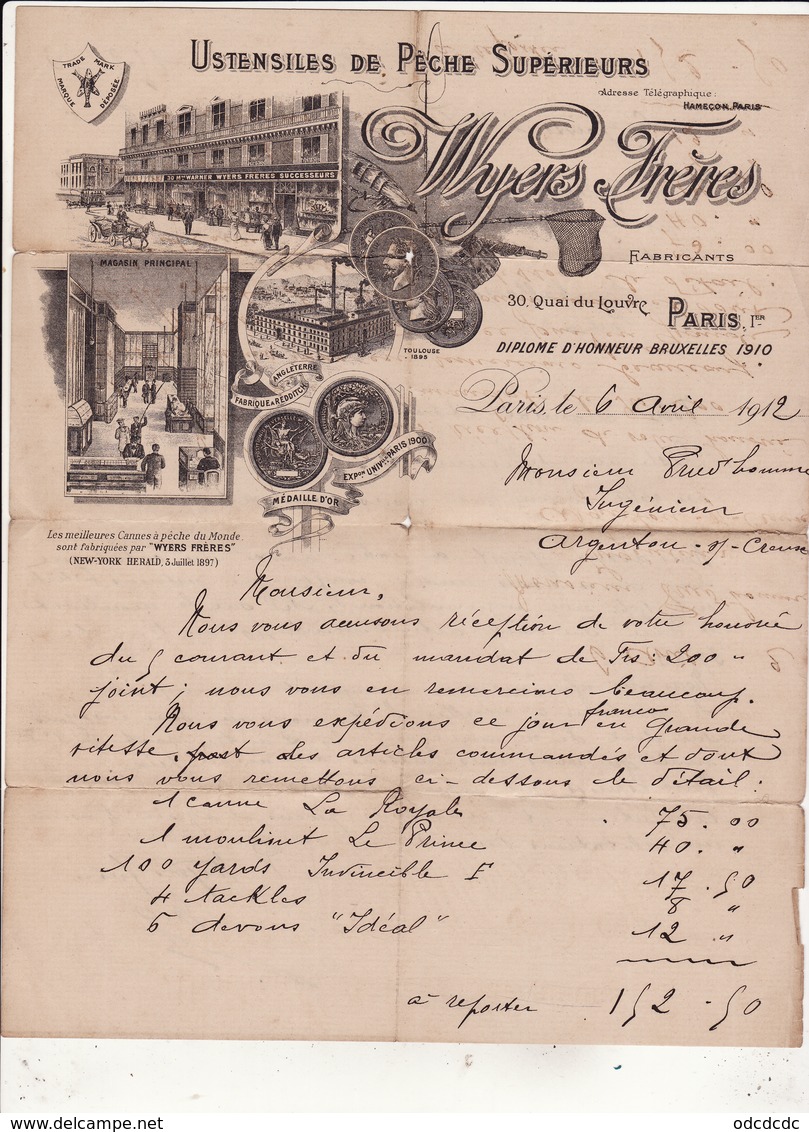 USTENSILES DE PÊCHE SUPÉRIEURS
TRADE MARK
MARQUE DÉPOSÉE
Adresse Télégraphique:
HAMEÇON-PARIS
Wyers Frères
30 Mon WARNER WYERS FRERES SUCCESSEURS
FABRICANTS
MAGASIN PRINCIPAL
30, Quai du Louvre PARIS, IER
TOULOUSE
1895
DIPLOME D'HONNEUR BRUXELLES 1910
ANGLETERRE
FABRIQUE A REDDITCH
Paris, le 6 Avril 1912
EXPON UNIVLLE PARIS 1900
MÉDAILLE D'OR
Monsieur Prud'homme
Ingénieur
Argenton s/ Creuse
Les meilleures Cannes à pêche du Monde
sont fabriquées par "WYERS FRÈRES"
(NEW-YORK HERALD, 3 Juillet 1897)
Monsieur,
Nous vous accusons réception de votre honorée
du 5 courant et du mandat de Frs: 200 "
joint; nous vous en remercions beaucoup.
Nous vous expédions ce jour franco en grande
vitesse les articles commandés et dont
nous vous remettons ci-dessous le détail:
1 canne La Royale 75.00
1 moulinet Le Prince 40. "
100 yards Invincible F 17.50
4 tackles 8 "
6 devons "Idéal" 12 "
à reporter 152.50
odcdcdc